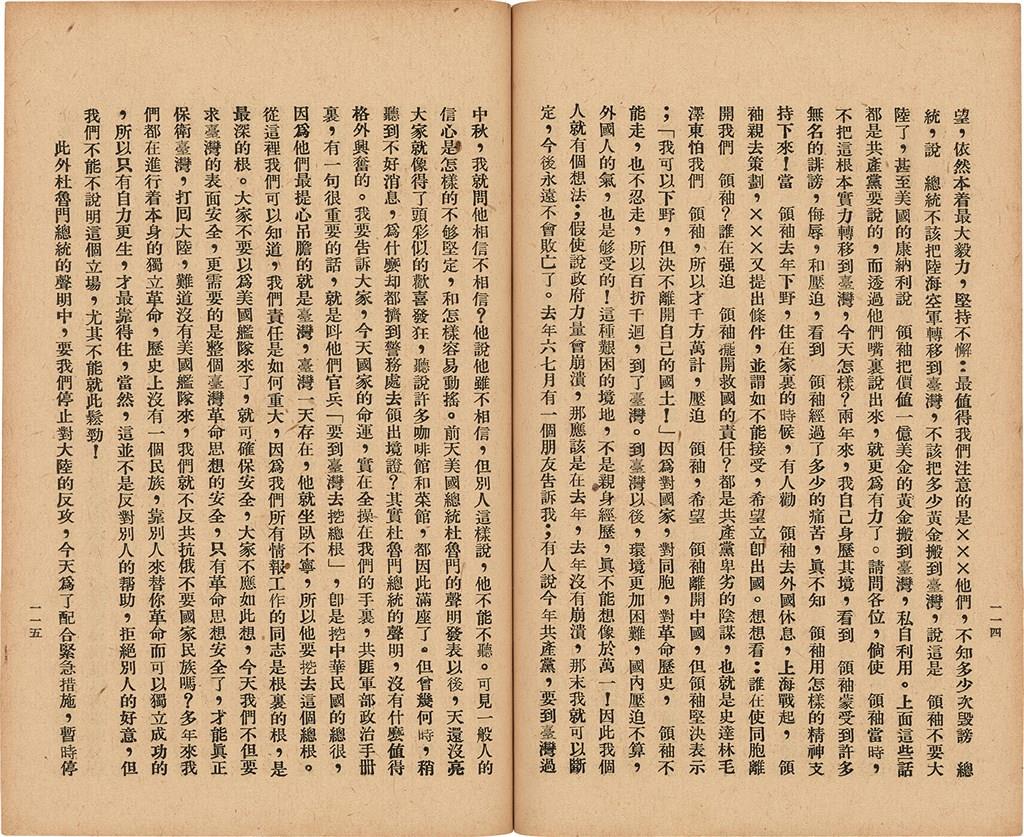 一一四
望，依然本着最大毅力，堅持不懈：最值得我們注意的是×××他們，不知多少次毀謗　總
統，說　總統不該把陸海空軍轉移到臺灣，不該把多少黃金搬到臺灣，說這是　領袖不要大
陸了，甚至美國的康納利說　領袖把價值一億美金的黃金搬到臺灣，私自利用。上面這些話
都是共產黨要說的，而透過他們嘴裏說出來，就更爲有力了。請問各位，倘使　領袖當時，
不把這根本實力轉移到臺灣，今天怎樣？兩年來，我自己身歷其境，看到　領袖蒙受到許多
無名的誹謗，侮辱，和壓迫，看到　領袖經過了多少的痛苦，眞不知　領袖用怎樣的精神支
持下來！當　領袖去年下野，住在家裏的時候，有人勸　領袖去外國休息，上海戰起，　領
袖親去策劃，×××又提出條件，並謂如不能接受，希望立卽出國。想想看：誰在使同胞離
開我們　領袖？誰在强迫　領袖擺開救國的責任？都是共產黨卑劣的陰謀，也就是史達林毛
澤東怕我們　領袖，所以才千方萬計，壓迫　領袖，希望　領袖離開中國，但領袖堅決表示
；「我可以下野，但決不離開自己的國土！」因爲對國家，對同胞，對革命歷史，　領袖不
能走，也不忍走，所以百折千迴，到了臺灣。到臺灣以後，環境更加困難，國內壓迫不算，
外國人的氣，也是够受的！這種艱困的境地，不是親身經歷，眞不能想像於萬一！因此我個
人就有個想法；假使說政府力量會崩潰，那應該是在去年，去年沒有崩潰，那末我就可以斷
定，今後永遠不會敗亡了。去年六七月有一個朋友告訴我；有人說今年共產黨，要到臺灣過
中秋，我就問他相信不相信？他說他雖不相信，但別人這樣說，他不能不聽。可見一般人的
信心是怎樣的不够堅定，和怎樣容易動搖。前天美國總統杜魯門的聲明發表以後，天還沒亮
大家就像得了頭彩似的歡喜發狂，聽說許多咖啡館和菜館，都因此滿座了。但曾幾何時，稍
聽到不好消息，爲什麽却都擠到警務處去領出境證？其實杜魯門總統的聲明，沒有什麽值得
格外興奮的。我要告訴大家，今天國家的命運，實在全操在我們的手裏，共匪軍部政治手册
裏，有一句很重要的話，就是呌他們官兵「要到臺灣去挖總根」，卽是挖中華民國的總很，
因爲他們最提心吊膽的就是臺灣，臺灣一天存在，他就坐臥不寧，所以他要挖去這個總根。
從這裡我們可以知道，我們責任是如何重大，因爲我們所有情報工作的同志是根裏的根，是
最深的根。大家不要以爲美國艦隊來了，就可確保安全，大家不應如此想，今天我們不但要
求臺灣的表面安全，更需要的是整個臺灣革命思想的安全，只有革命思想安全了，才能眞正
保衛臺灣，打回大陸，難道沒有美國艦隊來，我們就不反共抗俄不要國家民族嗎？多年來我
們都在進行着本身的獨立革命，歷史上沒有一個民族，靠別人來替你革命而可以獨立成功的
，所以只有自力更生，才最靠得住，當然，這並不是反對別人的帮助，拒絕別人的好意，但
我們不能不說明這個立場，尤其不能就此鬆勁！
此外杜魯門總統的聲明中，要我們停止對大陸的反攻，今天爲了配合緊急措施，暫時停
一一五